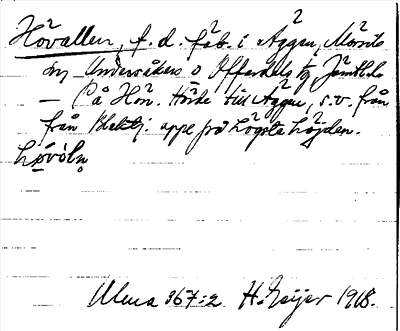 Hövallen, f. d. fäb. i Äggen, Mörsils
sn Undersåkers o Offerdals tg Jämtl.
— På Höv. Hörde till Äggen, s.v. från
från uppe på högsta höjden.
Ulma 367:2 H. Geijer 1918.